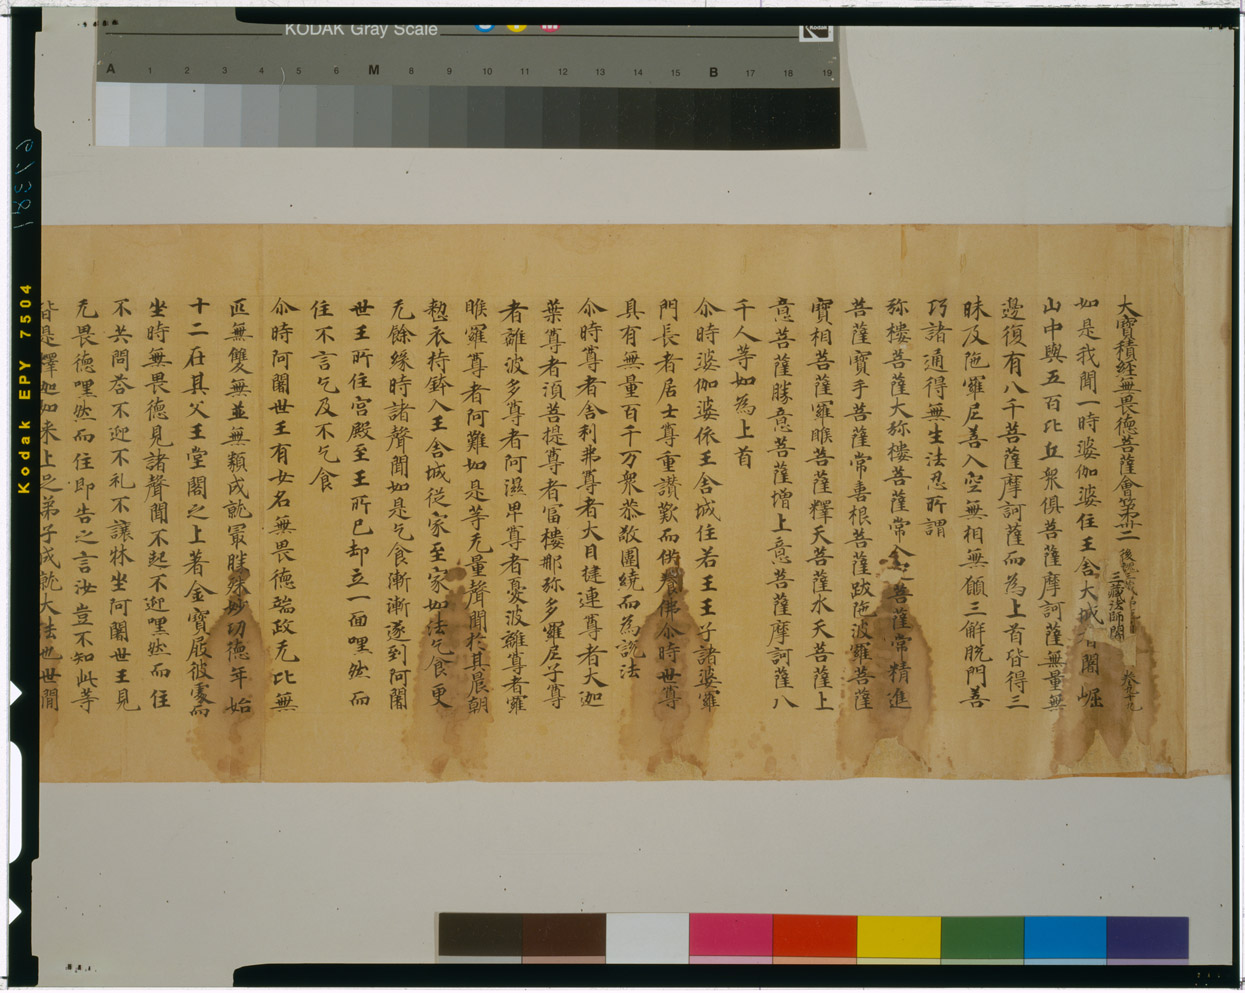 KODAK Gray Scale
A 1 2 3 4 5 6 M 8 9 10 11 12 13 14 15 B 17 18 19
Kodak EPY 7504
大寶積經無畏德菩薩會第卅二
三藏法師 卷第九十九
如是我聞一時婆伽婆住王舍大城耆闍崛
山中與五百比丘衆俱菩薩摩訶薩無量無
邊復有八千菩薩摩訶薩而為上首皆得三
昧及陁羅尼善入空無相無願三解脫門善
巧諸通得無生法忍所謂
弥樓菩薩大弥樓菩薩常 菩薩常精進
菩薩寶手菩薩常喜根菩薩跋陁波羅菩薩
寶相菩薩羅睺菩薩釋天菩薩水天菩薩上
意菩薩勝意菩薩增上意菩薩摩訶薩八
千人等如為上首
尒時婆伽婆依王舍城住若王王子諸婆羅
門長者居士尊重讃歎而供養佛尒時世尊
具有無量百千万衆恭敬圍繞而為說法
尒時尊者舍利弗尊者大目揵連尊者大迦
葉尊者湏菩提尊者富樓那弥多羅尼子尊
者離波多尊者阿濕卑尊者憂波離尊者羅
睺羅尊者阿難如是等无量聲聞於其晨朝
懃衣持鉢入王舍城從家至家如法乞食更
无餘緣時諸聲聞如是乞食漸漸遂到阿闍
世王所住宮殿至王所已却立一面嘿然而
住不言乞及不乞食
尒時阿闍世王有女名無畏德端政无比無
匹無雙無並無類成就冣勝殊妙功德年始
十二在其父王堂閣之上著金寶屐彼處而
坐時無畏德見諸聲聞不起不迎嘿然而住
不共問荅不迎不礼不讓牀坐阿闍世王見
无畏德嘿然而住即告之言汝豈不知此等
皆是釋迦如来上之弟子成就大法也世間